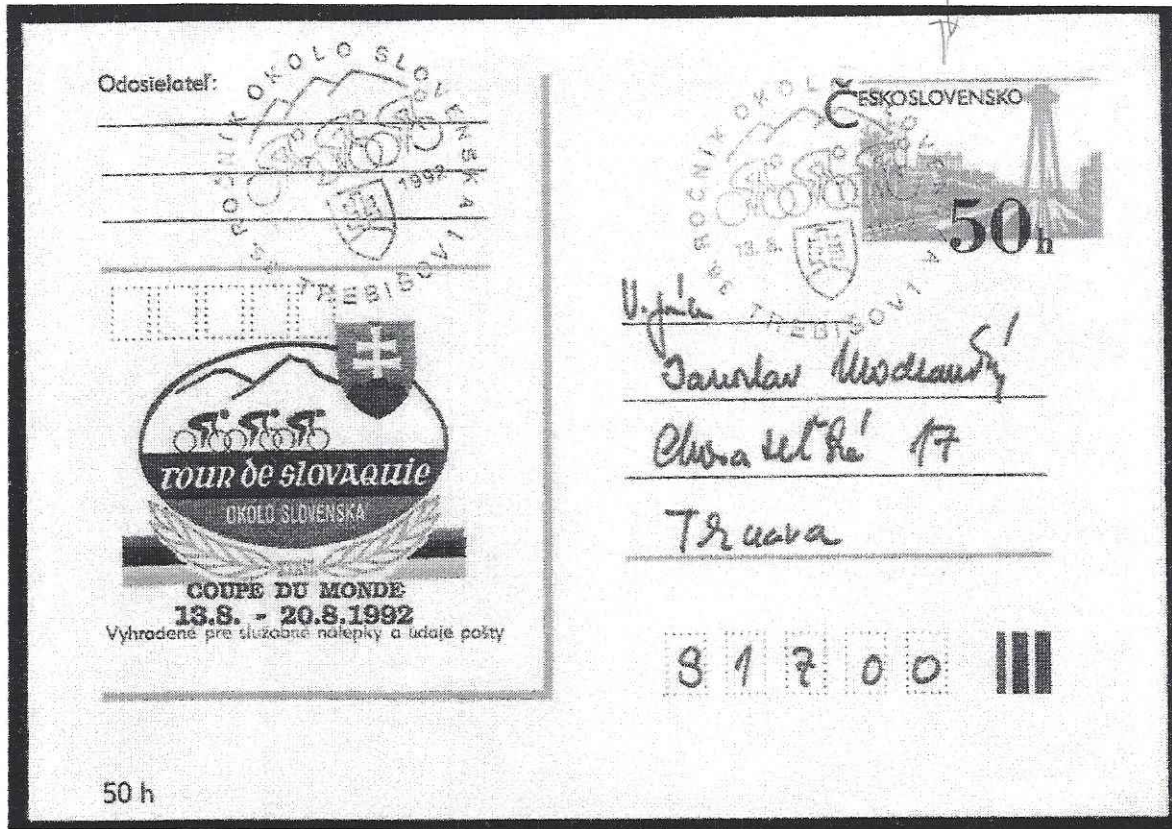 Odosielateľ:
ROČNÍK OKOLO SLOVENSKA
1992
TREBIŠOV 1
TOUR de SLOVAQUIE
OKOLO SLOVENSKA
COUPE DU MONDE
13.8. - 20.8.1992
Vyhradené pre služobné nálepky a údaje pošty
50 h
ČESKOSLOVENSKO
50h
ROČNÍK OKOLO
13. 8.
TREBIŠOV 1
Jaroslav
17
Trnava
91700